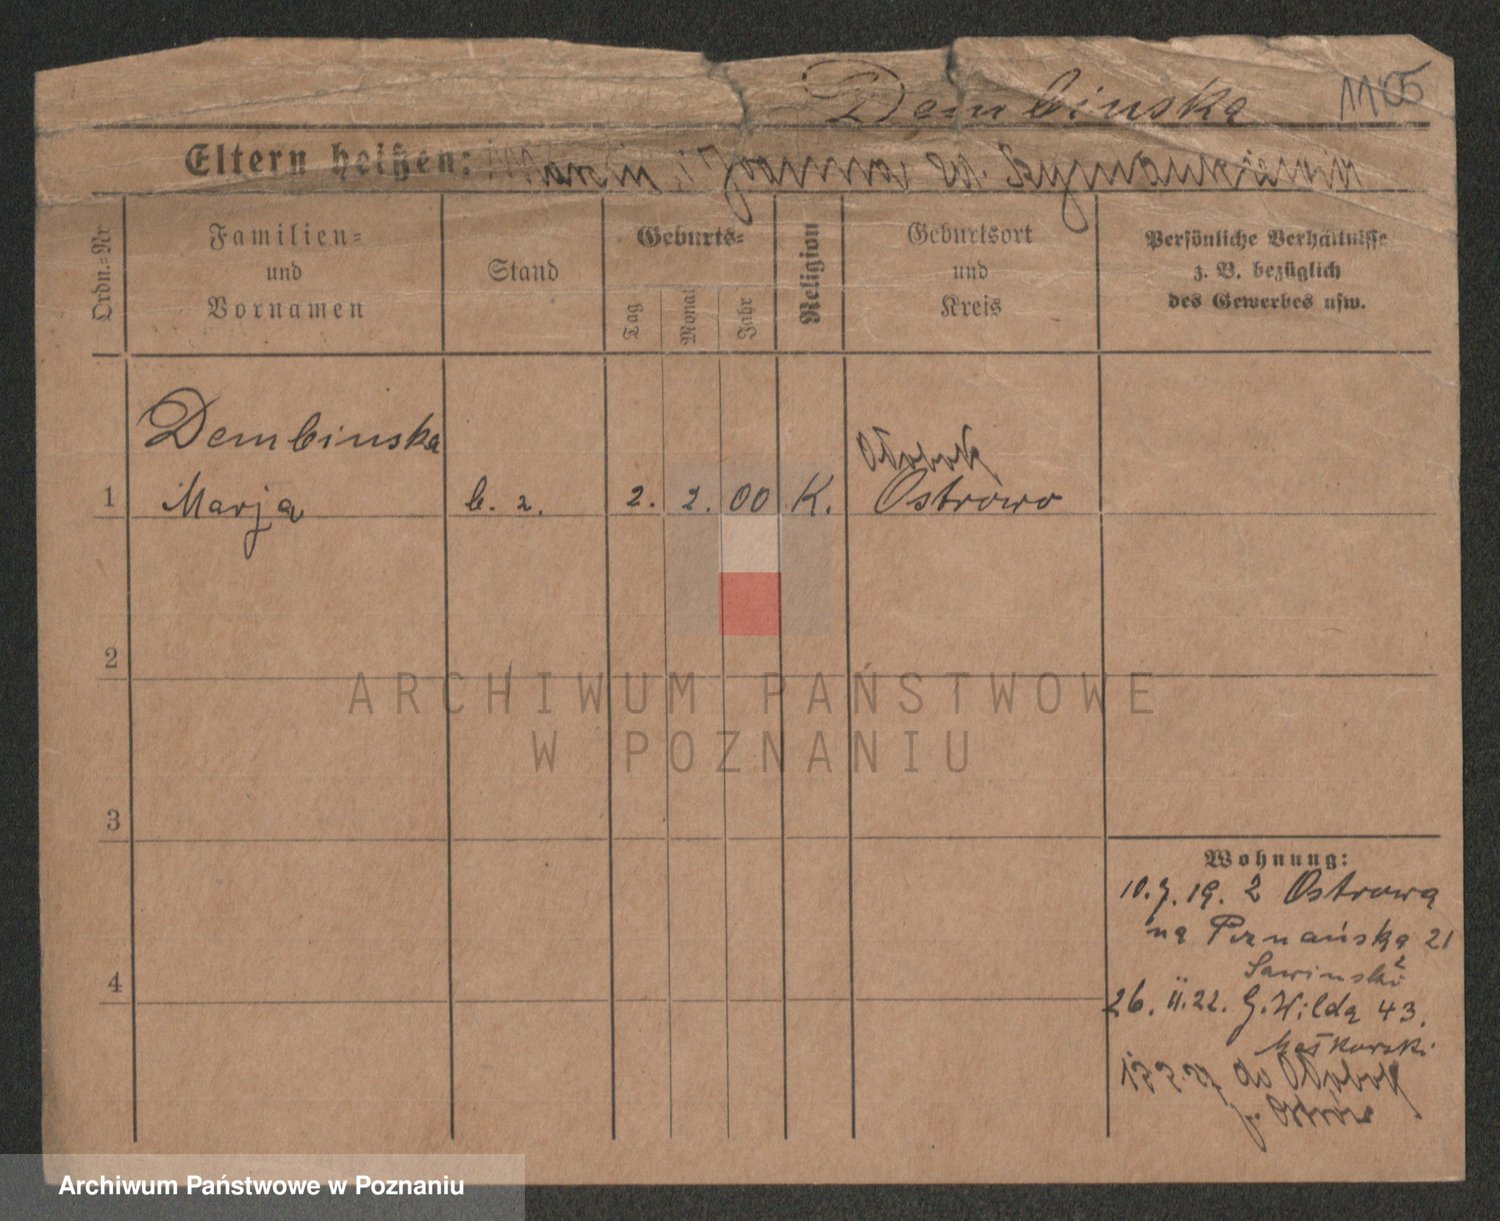 Dembinska 1105
Eltern heißen: Marcin, i Joanna zd. Szymankiewicz
Ordn.=Nr
Familien=
und
Vornamen
Stand
Geburts=
Tag
Monat
Jahr
Religion
Geburtsort
und
Kreis
Persönliche Verhältnisse
z. B. bezüglich
des Gewerbes usw.
Dembinska
Ołobok
1 Marja b. z. 2. 2. 00 K. Ostrowo
2
ARCHIWUM PAŃSTWOWE
W POZNANIU
3
Wohnung:
10.7.19. z Ostrowa
na Poznańska 21
Sawinski
4
26. II. 22. G. Wilda 43.
do Ołobok
p. Ostrów
Archiwum Państwowe w Poznaniu